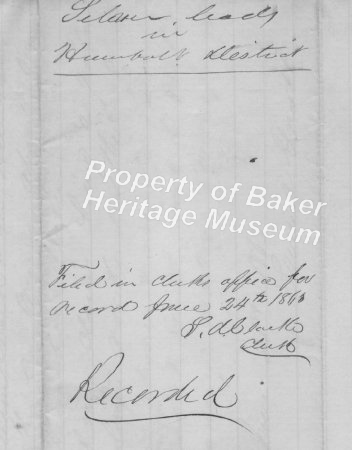 Silver leads
in
Humbolt District
Property of Baker
Heritage Museum
Filed in clerks office for
record June 24th 186
Clerk
Recorded